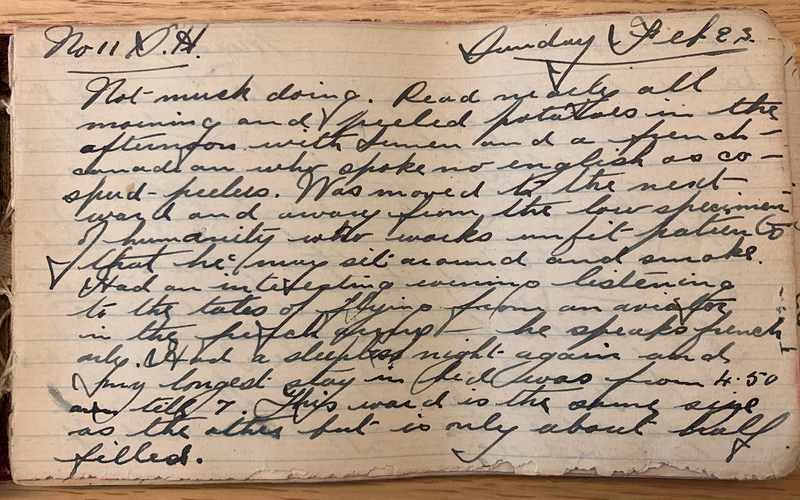 No 11 S.H. Sunday Feb 23.
Not much doing. Read nearly all
morning and peeled potatoes in the
afternoon with and a french-
canadian who spoke no english as co-
spud-peelers. Was moved to the next
ward and away from the low specimen
of humanity who works unfit patients
that he may sit around and smoke.
Had an interesting evening listening
to the tales of flying from an aviator
in the french army - he speaks french
only. Had a sleepless night again and
my longest stay in bed was from 4.50
am till 7. This ward is the same size
as the other but is only about half
filled.